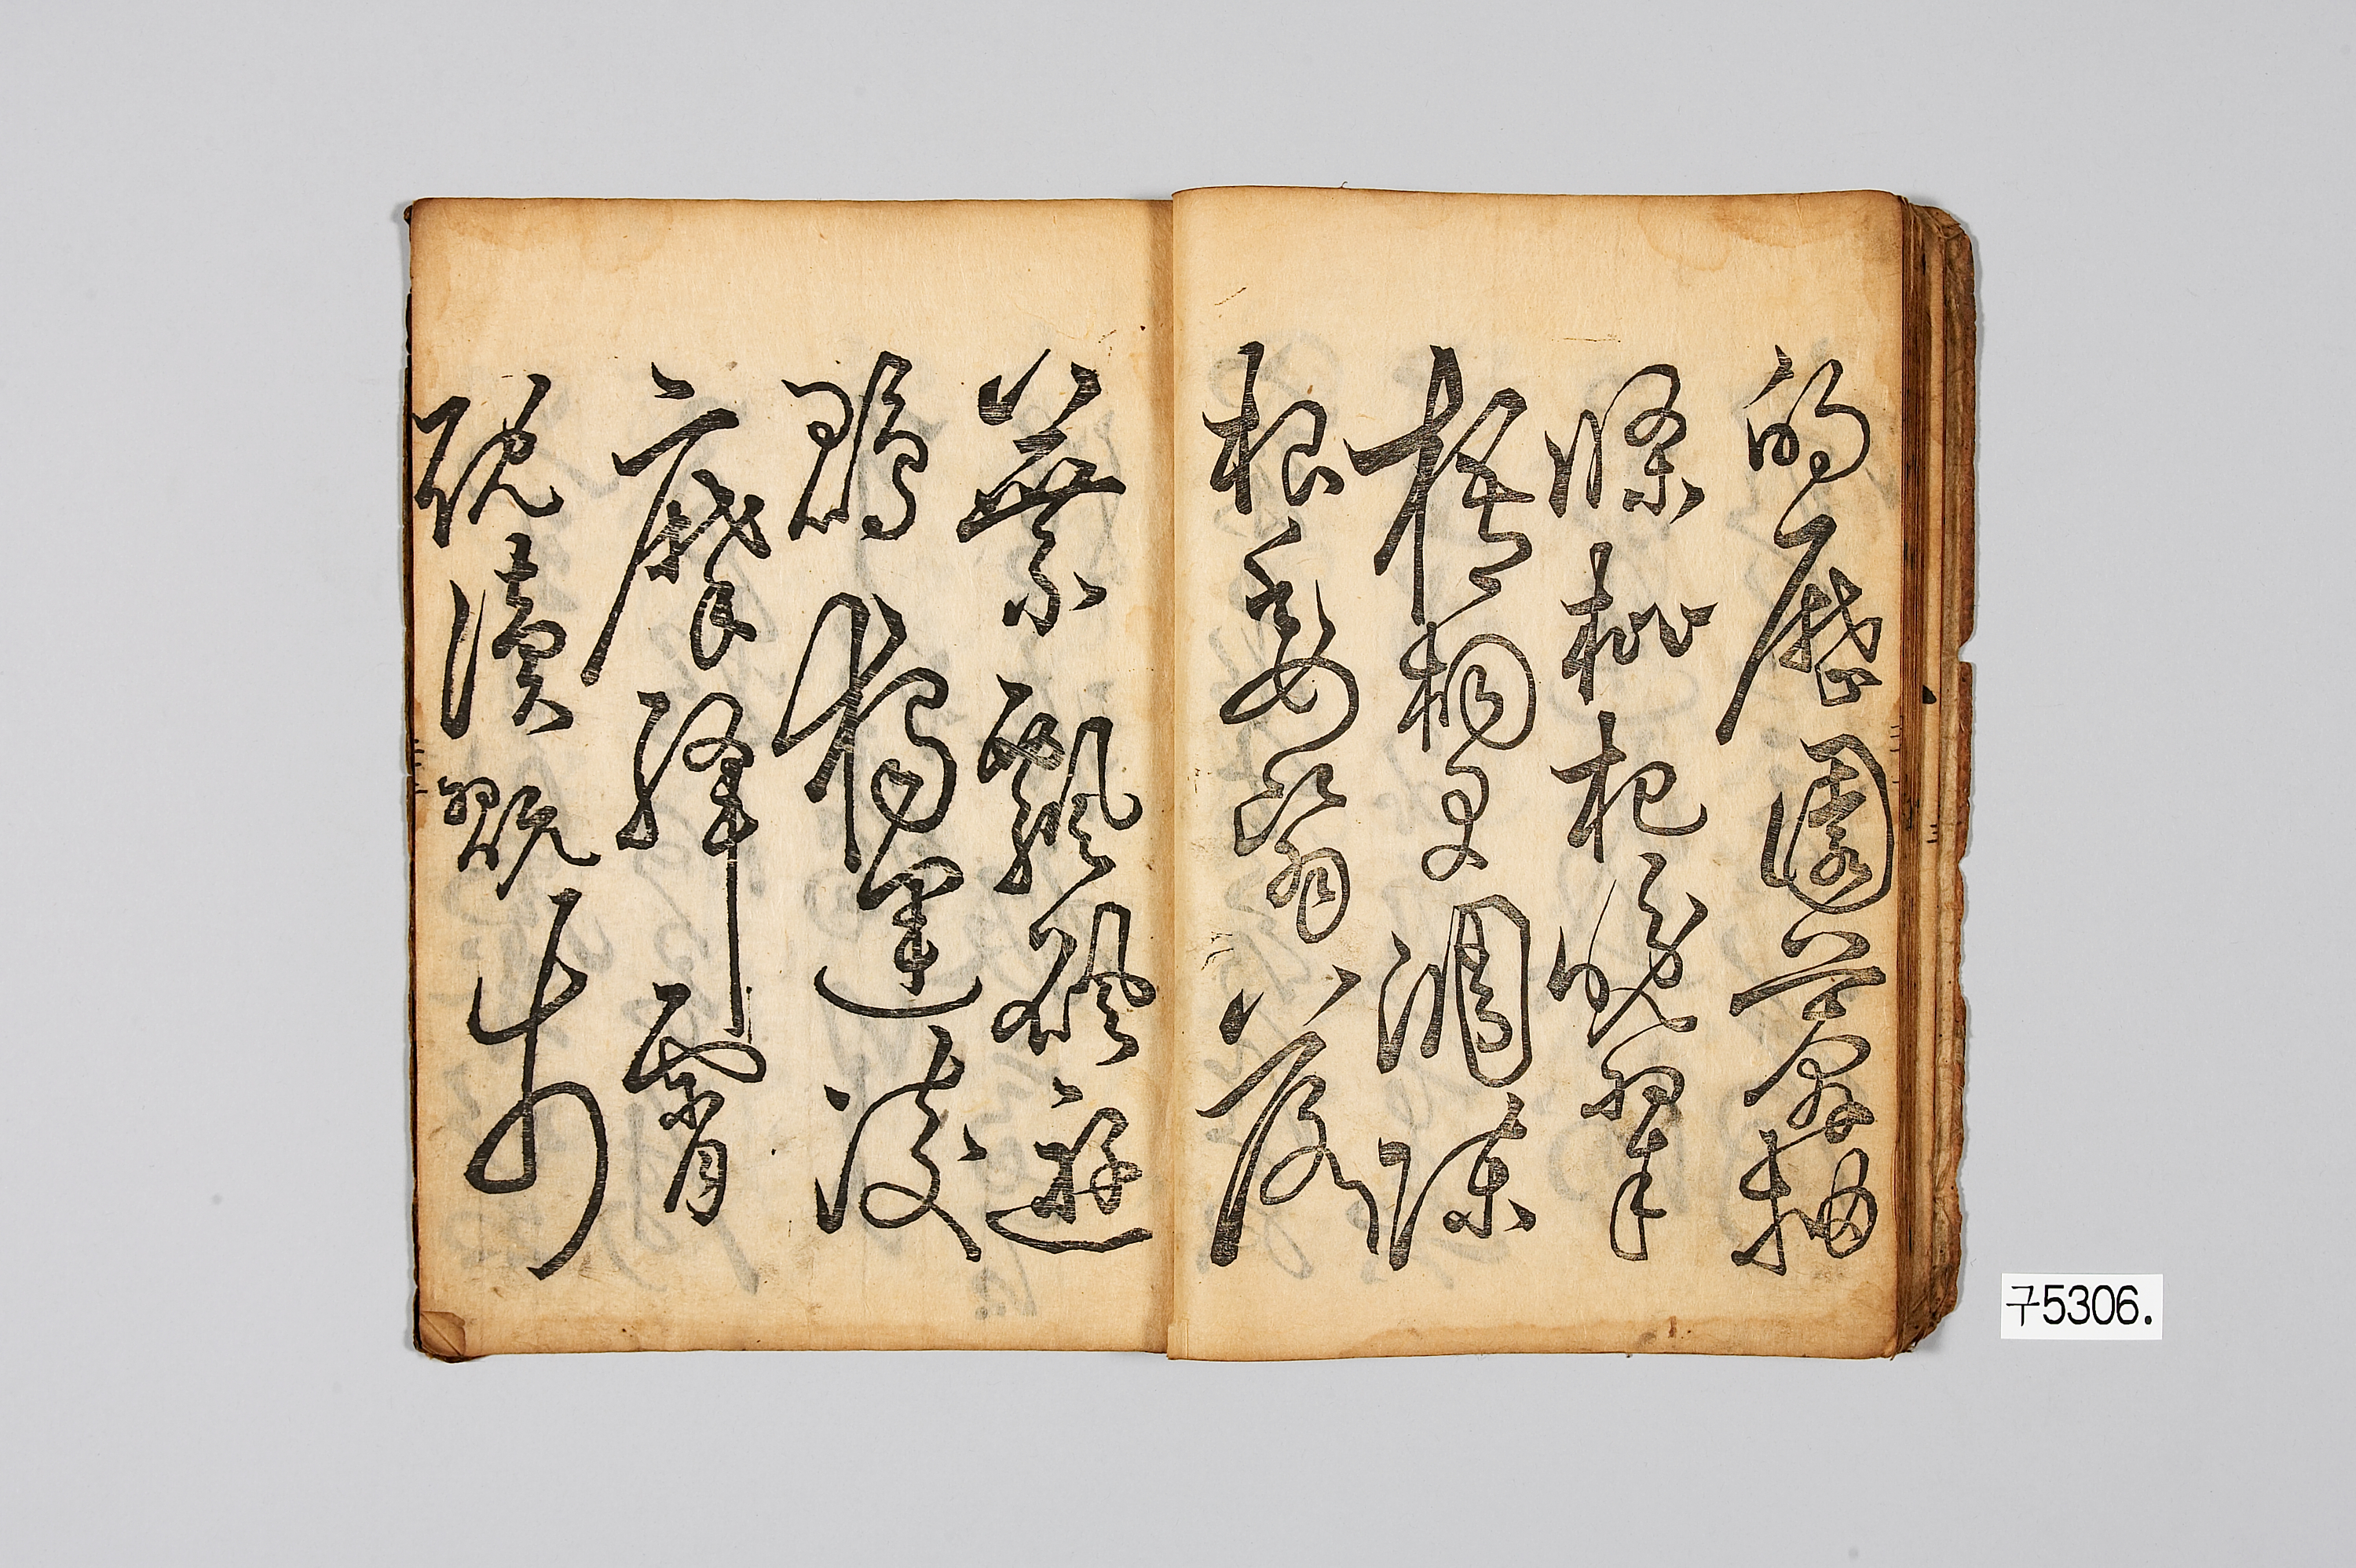 的歷園莽抽
條枇杷晚翠
梧桐早凋陳
根委翳落
葉飄颻遊
鵾獨運凌
摩絳霄
耽讀翫市
구5306.